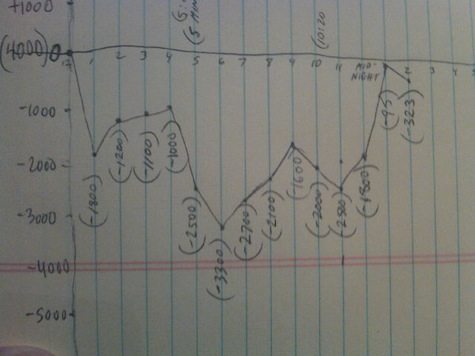 +1000
(5:
(5 MIN
(10:20
(4000) 0
12 1 2 3 4 5 6 7 8 9 10 11 MID- 2 3 4
NIGHT
-1000
-2000
-3000
-4000
-5000
(-1800)
(-1200)
(-1100)
(-1000)
(-2500)
(-3300)
(-2700)
(-2100)
(-1600)
(-2000)
(-2500)
(-1800)
(-95)
(-323)